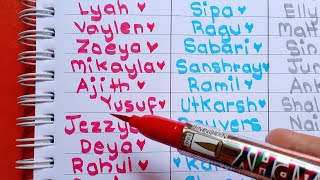 Lyah♥
Vaylen♥
Zaeya♥
Mikayla♥
Ajith♥
Yusuf♥
Jezzy
Deya♥
Rahul
Sipa♥
Ragu♥
Sabari♥
Sanshray♥
Ramil♥
Utkarsh♥
Elly
Matt
Sin
Jan
Ank
Shal
Nai